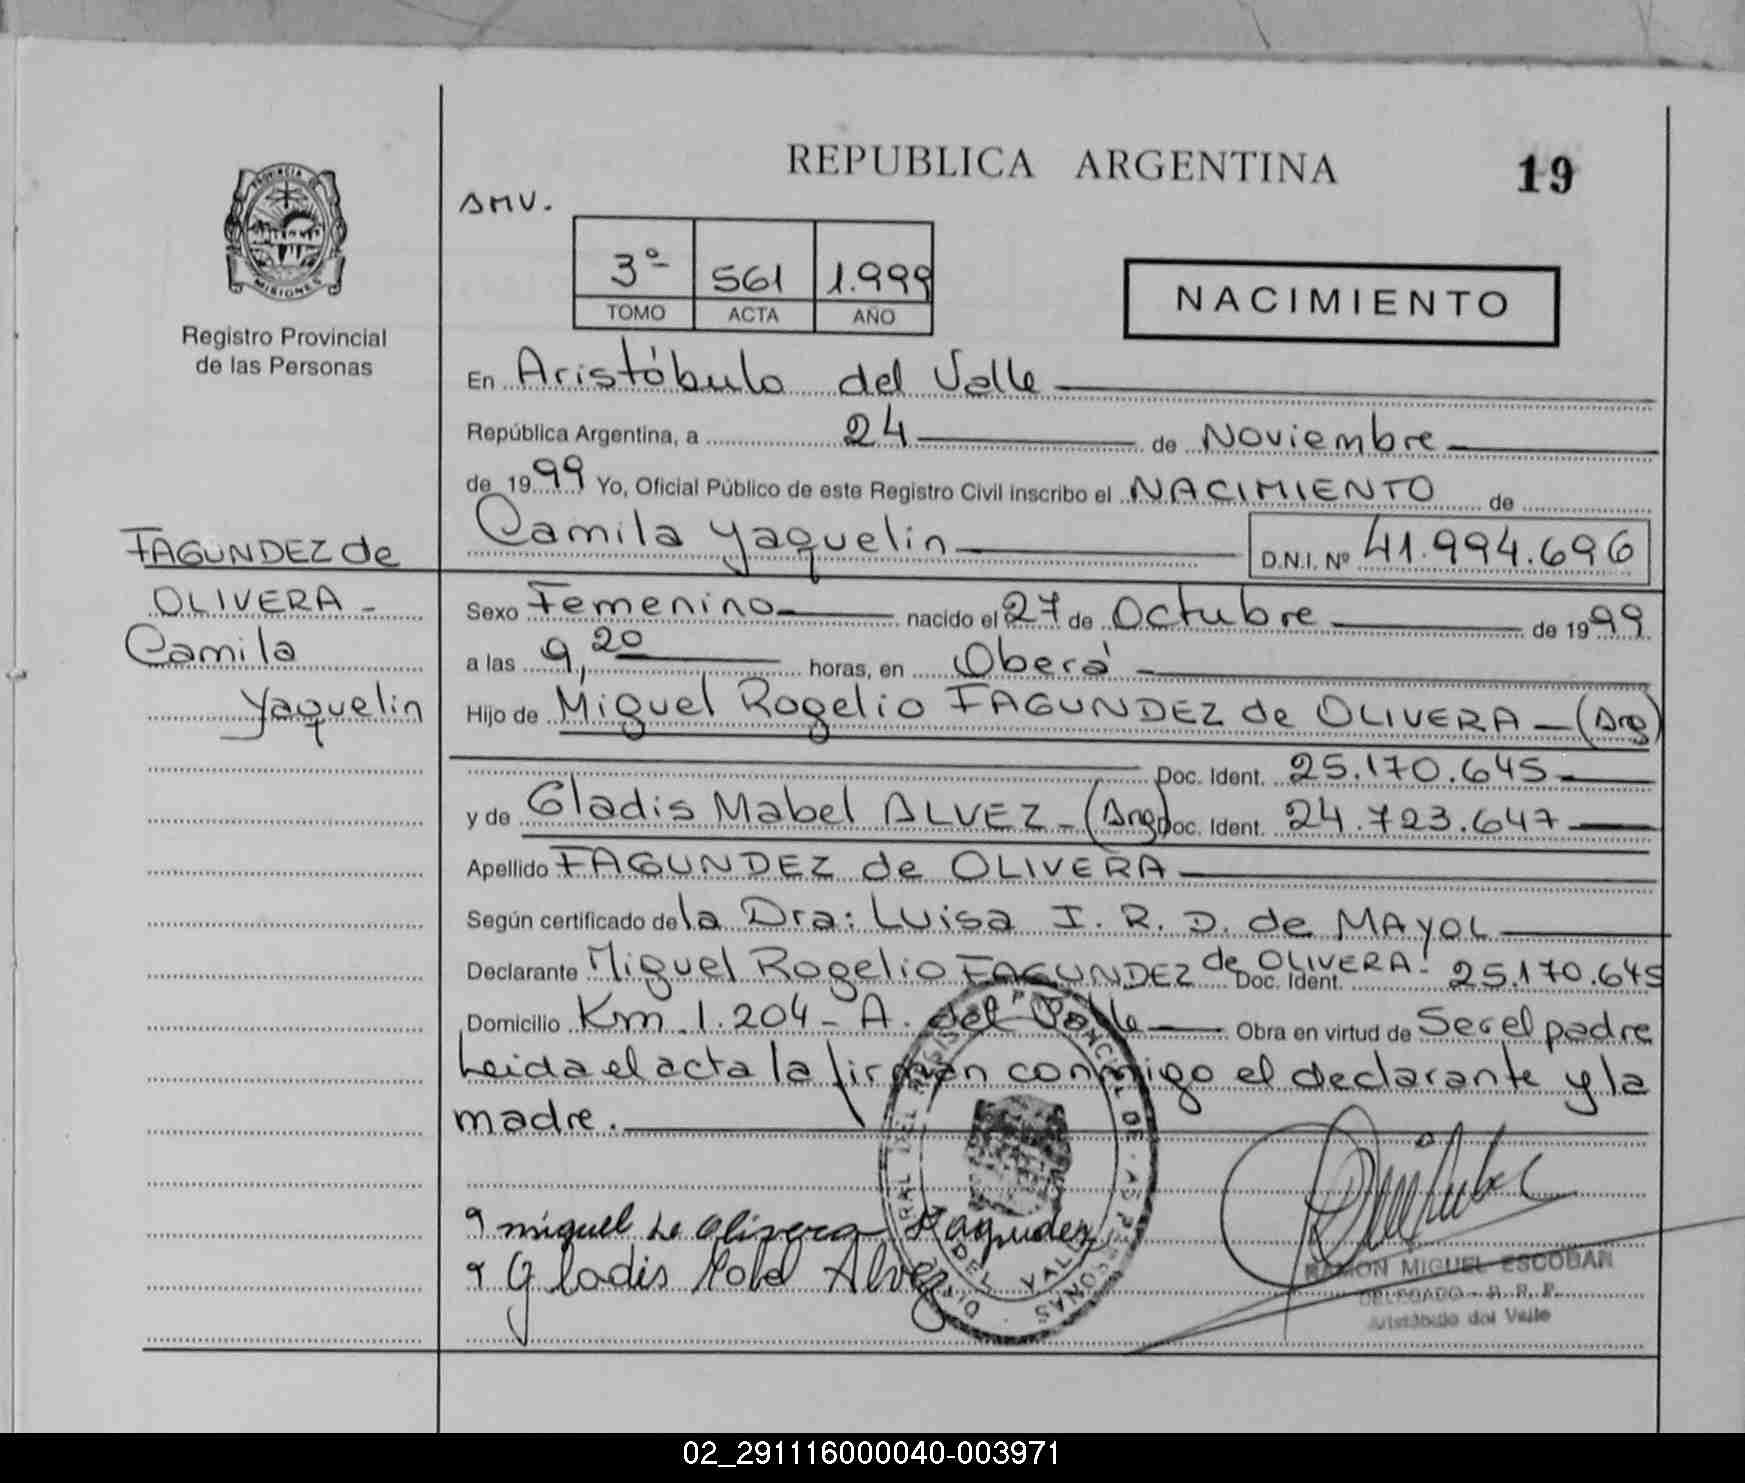 REPUBLICA ARGENTINA
19
AMV.
3º 561 1.999
TOMO ACTA AÑO
NACIMIENTO
PROVINCIA DE
MISIONES
Registro Provincial
de las Personas
FAGUNDEZ de
OLIVERA -
Camila
Yaquelin
En Aristóbulo del Valle
República Argentina, a 24 de Noviembre
de 1999 Yo, Oficial Público de este Registro Civil inscribo el NACIMIENTO de
Camila Yaquelin D.N.I. Nº 41.994.696
Sexo Femenino nacido el 27 de Octubre de 1999
a las 9,20 horas, en Oberá
Hijo de Miguel Rogelio FAGUNDEZ de OLIVERA - (Arg)
Doc. Ident. 25.170.645
y de Gladis Mabel ALVEZ - (Arg) Doc. Ident. 24.723.647
Apellido FAGUNDEZ de OLIVERA
Según certificado de la Dra: Luisa I. R. D. de MAYOL
Declarante Miguel Rogelio FAGUNDEZ de OLIVERA Doc. Ident. 25.170.645
Domicilio Km 1.204 - A. del Valle Obra en virtud de Ser el padre
Leida el acta la firman conmigo el declarante y la
madre.
miguel de olivera Fagundez
Gladis Mabel Alvez
DEL VALLE
RAMON MIGUEL ESCOBAR
DELEGADO - R. R. P.
Aristóbulo del Valle
02_291116000040-003971